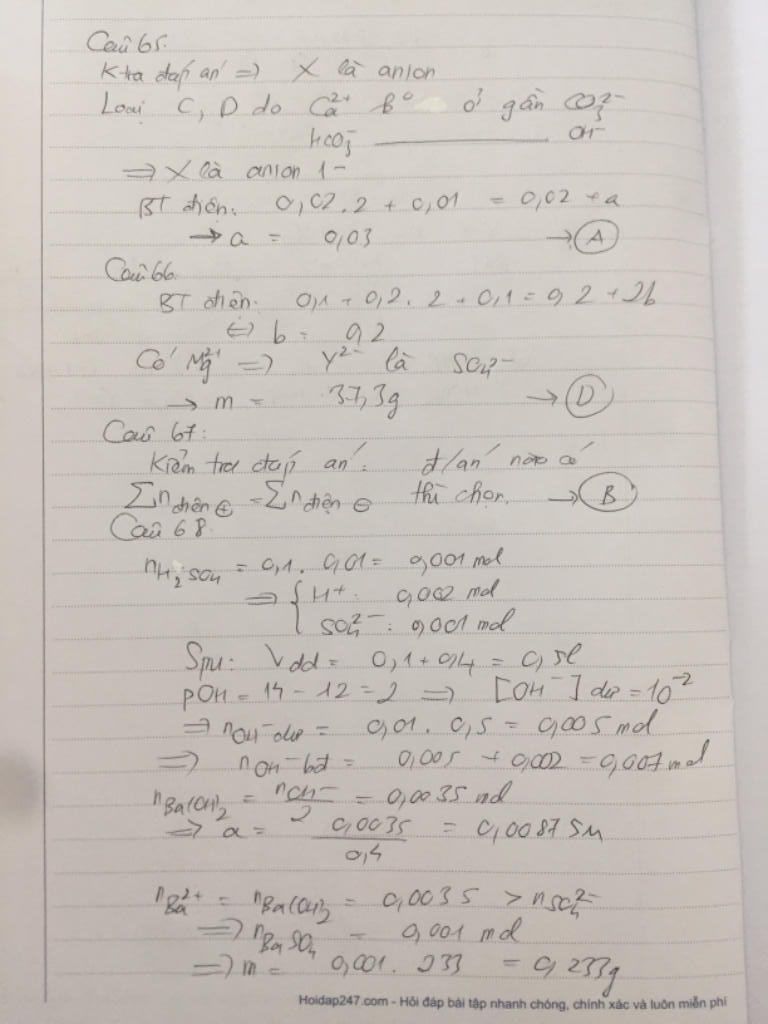 Câu 65.
Ktra đáp án => X là anion
Loại C, D do Ca²⁺ k° ở gần CO₃²⁻
HCO₃⁻ ———— OH⁻
=> X là anion 1-
BT điện: 0,02.2 + 0,01 = 0,02 + a
→ a = 0,03 → A
Câu 66.
BT điện: 0,1 + 0,2.2 + 0,1 = 0,2 + 2b
<=> b = 0,2
Có Mg²⁺ => Y²⁻ là SO₄²⁻
→ m = 37,3g → D
Câu 67:
Kiểm tra đáp án: đ/án nào có
∑n điện ⊕ = ∑n điện ⊖ thì chọn. → B
Câu 68.
nH₂SO₄ = 0,1. 0,01 = 0,001 mol
=> { H⁺: 0,002 mol
SO₄²⁻: 0,001 mol
Spu: Vdd = 0,1 + 0,4 = 0,5l
pOH = 14 - 12 = 2 => [OH⁻] dư = 10⁻²
=> nOH⁻ dư = 0,01. 0,5 = 0,005 mol
=> nOH⁻ bđ = 0,005 + 0,002 = 0,007 mol
nBa(OH)₂ = nOH⁻/2 = 0,0035 mol
=> a = 0,0035/0,4 = 0,00875M
nBa²⁺ = nBa(OH)₂ = 0,0035 > nSO₄²⁻
=> nBaSO₄ = 0,001 mol
=> m = 0,001. 233 = 0,233g
Hoidap247.com - Hỏi đáp bài tập nhanh chóng, chính xác và luôn miễn phí